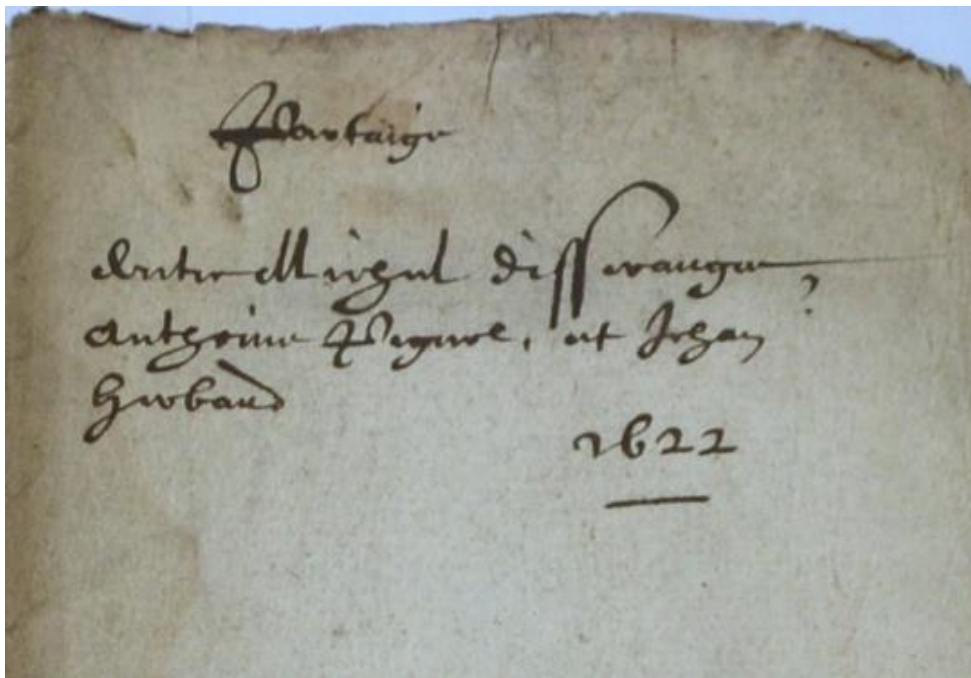 Partaige
Entre Michel disserange,
Anthoine Pignel, et Jehan
Herbaud
1622